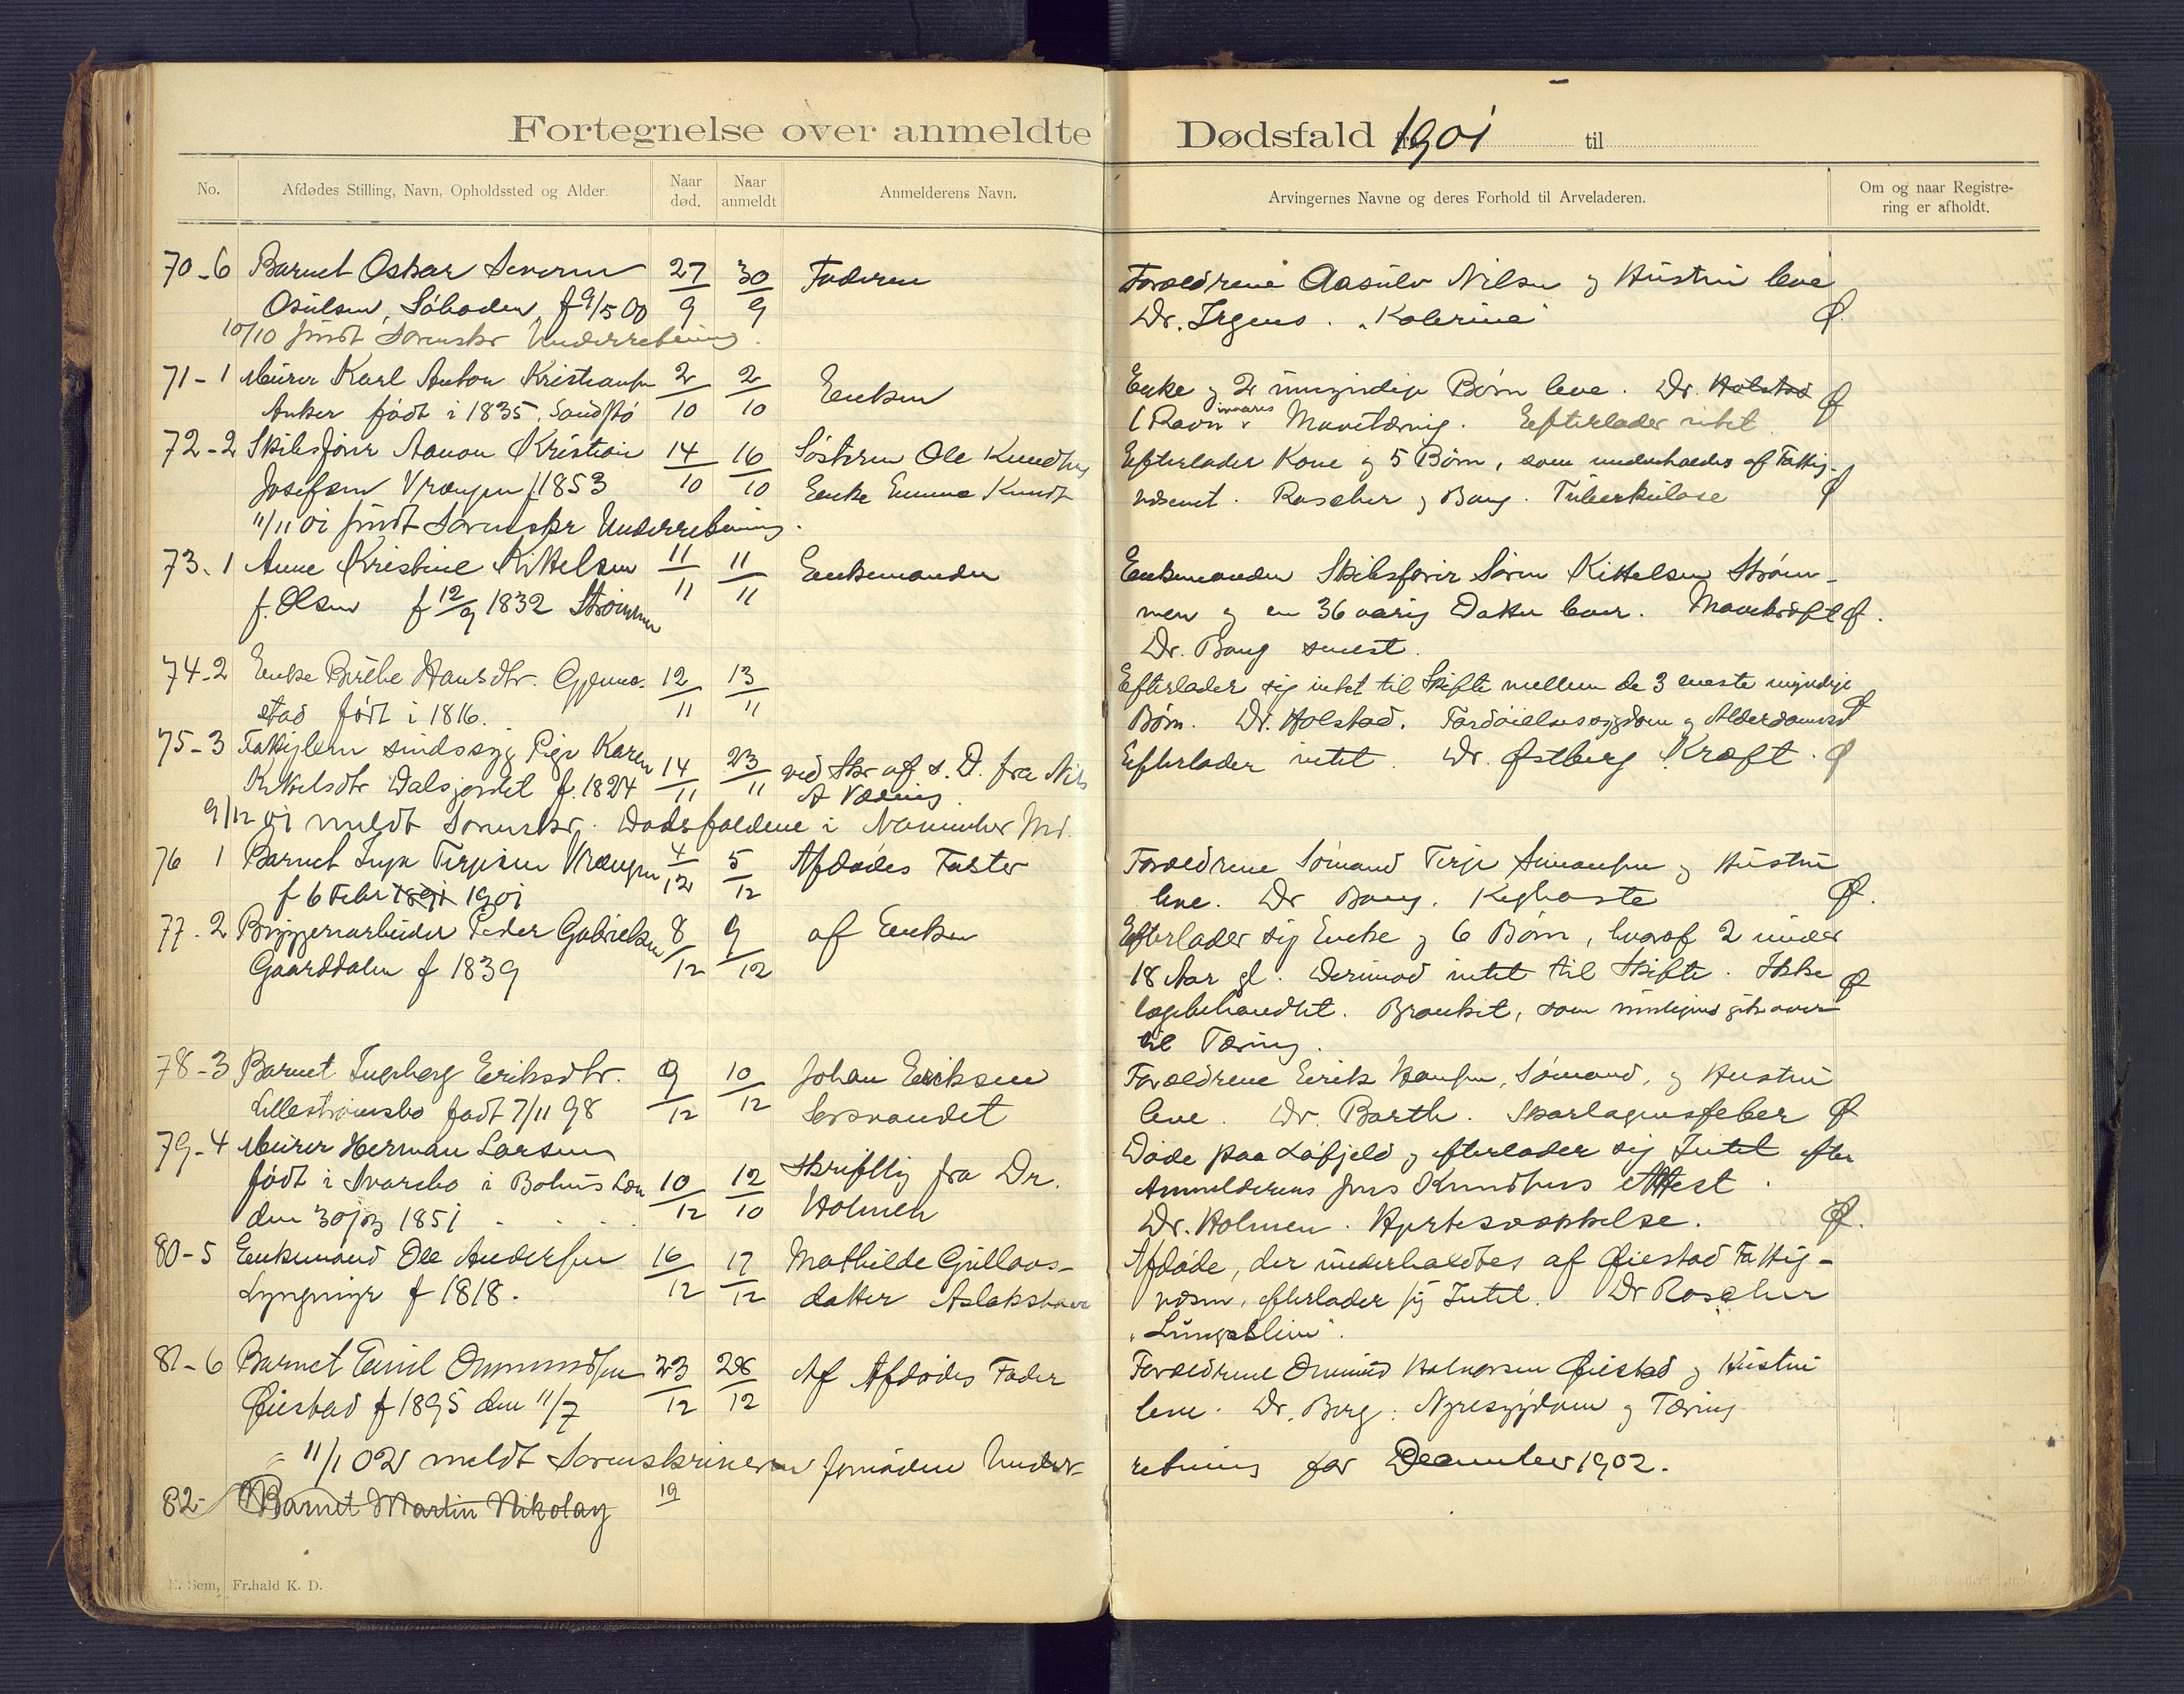 Fortegnelse over anmeldte Dødsfald 1901 til
No. Afdødes Stilling, Navn, Opholdssted og Alder. Naar død. Naar anmeldt Anmelderens Navn. Arvingernes Navne og deres Forhold til Arveladeren. Om og naar Registrering er afholdt.
70-6 Barnet Oskar Severin 27/9 30/9 Faderen Forældrene Aasulv Nilsen og Hustru leve
Osulsen, Søboden, f 9/5 00 Dr. Irgens. "Kolerine"
10/10 sendt Sorenskr Underretning.
71-1 Murer Karl Anton Kristiansen 2/10 2/10 Enken Enke og 2 umyndige Børn leve. Dr. Holstad
Anker født i 1835, Sandstø (Ravn Mavetæring. Efterlader intet
72-2 Skibsfører Aanon Kristian 14/10 16/10 Søsteren Ole Knudsens Efterlader Kone og 5 Børn, som underholdes af Fattig-
Josefsen Vrængen f 1853 Enke Emma Knudt væsenet. Rascher og Bang. Tuberkulose
11/11 01 sendt Sorenskr Underretning.
73-1 Anne Kristine Kittelsen 11/11 11/11 Enkemanden Enkemanden Skibsfører Søren Kittelsen Strøm-
f. Olsen f 12/9 1832 Strømmen men og en 36 aarig Datter lever. Mavekræft
Dr. Bang senest.
74-2 Enke Birthe Hansdtr. 12/11 13/11 Efterlader sig intet til Skifte mellem de 3 eneste myndige
stad født i 1816. Børn. Dr. Holstad. Fordøielsessygdom og Alderdomssv
75-3 Fattiglem sindssyg Pige Karen 14/11 23/11 ved Skr af s. D. fra Nils Efterlader intet. Dr. Østberg Kræft.
Kittelsdtr Dalsjordet f. 1824 A
9/12 01 meldt Sorenskr. Dødsfaldene i November Md.
76 1 Barnet Inga Terjesen Vrængen 4/12 5/12 Afdødes Faster Forældrene Sømand Terje Simonsen og Hustru
f 6 Febr 1891 1901 leve. Dr Bang. Kighoste
77-2 Bryggerarbeider Peder Gabrielsen 8/12 9/12 af Enken Efterlader sig Enke og 6 Børn, hvoraf 2 under
Gaarddalen f 1839 18 Aar gl. Derimod intet til Skifte. Ikke
lægebehandlet. Bronkit, som gik over
til Tæring.
78-3 Barnet Ingeborg Eriksdtr. 9/12 10/12 Johan Eriksen Forældrene Erik Hansen, Sømand, og Hustru
Lillestrømsbo født 7/11 98 Sørsvandet leve. Dr. Barth. Skarlagensfeber
79-4 Murer Herman Larsen Døde paa Løfjeld og efterlader sig Intet efter
født i Svarebo i Bohus Len 10/12 12/10 Skriftlig fra Dr. Anmelderens Jens Knudsens Attest.
den 30/ 1851 Holmen Dr. Holmen. Hjertesvækkelse.
80-5 Enkemand Ole Andersen 16/12 17/12 Mathilde Gullaos- Afdøde, der underholdtes af Øiestad Fattig-
Lyngmyr f 1818. datter Aslakstveit væsen, efterlader sig Intet. Dr Rascher
"Lungeslim".
81-6 Barnet Emil Ommundsen 23/12 28/12 Af Afdødes Fader Forældrene Ommund Halvorsen Øiestad og Hustru
Øiestad f 1895 den 11/7 leve. Dr. Borg: Nyresygdom og Tæring
11/1 02 meldt Sorenskriveren fornøden Under- retning for December 1902.
82- Barnet Martin Nikolay 19
E. Sem, Fr.hald K. D.